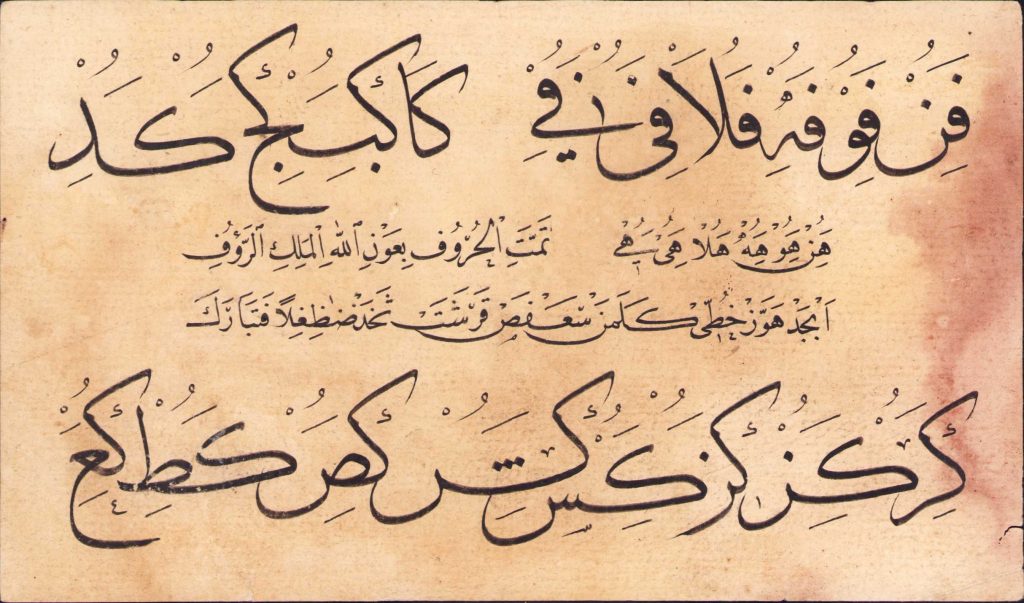 فَنِ فَوُ فَهُ فُلَا فِى فِي كَا كَبُ كَجُ كَدِ
هَنِ هَوُ هَهُ هُلَا هِىَ هِي تَمَّتِ الْحُرُوُف بِعَوْنِ اللهِ الْمَلِكِ الرَّؤُفِ
اَبْجَدْ هَوَّزْ حُطِّى كَلَمَنْ سَعْفَصْ قَرَشَتْ ثَخَذْ ضَظَغِلًا فَتَبَارَكَ
كر كر كر كس كش كص كط كع